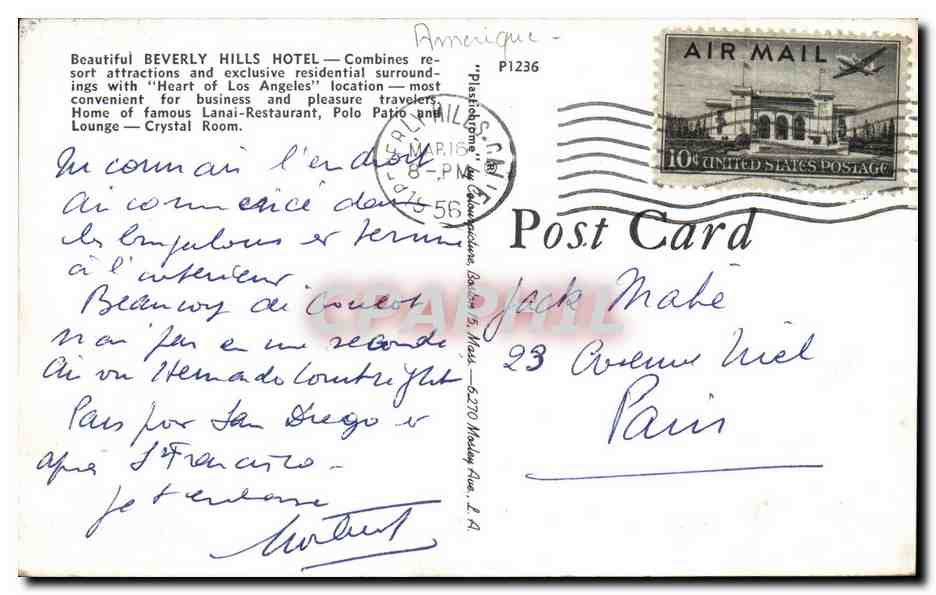 Amérique -
Beautiful BEVERLY HILLS HOTEL — Combines re-
sort attractions and exclusive residential surround-
ings with "Heart of Los Angeles" location — most
convenient for business and pleasure travelers.
Home of famous Lanai-Restaurant, Polo Patio and
Lounge — Crystal Room.
P1236
AIR MAIL
10¢ UNITED STATES POSTAGE
BEVERLY HILLS. CALIF.
MAR 16
8 - PM
1956
Post Card
"Plastichrome" by Colourpicture, Boston 15, Mass. — 6270 Mosley Ave., L. A.
Tu connais l'endroit
ai commencé dans
les bungalows et terminé
à l'intérieur
Beaucoup de
n'ai pas eu une seconde
ai vu Hernando
Pars pour San Diego et
après S Francisco -
Je t'embrasse
Jack Mahé
23 Avenue Niel
Paris
CPAPHIL